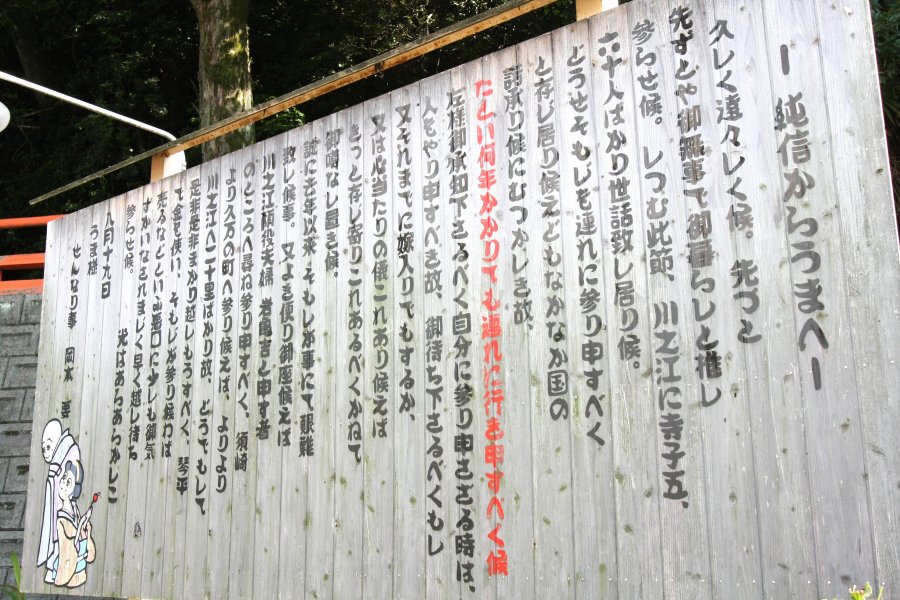 ― 純信からうまへ ―
久しく遠々しく候。先づと
先ずとや御無事で御暮らしと推し
参らせ候。しつむ此節、川之江に寺子五、
六十人ばかり世話致し居り候。
どうせそもじを連れに参り申すべく
と存じ居り候えどもなかなか国の
詰承り候にむつかしき故、
たとい何年かかりても連れに行き申すべく候
左様御承知下さるべく自分に参り申さざる時は、
人をやり申すべき故、御待ち下さるべくもし
又それまでに嫁入りでもするか、
又は心当たりの儀これあり候えば
きっと存じ寄りこれあるべくかねて
御噂なし置き候。
誠に去年以来、そもじが事にて艱難
致し候事。又よき便り御座候えば
川之江頼役夫婦 岩亀吉と申す者
のところへ尋ね参り申すべく、須崎
より久万の町へ参り候えば、よりより
川之江へ二十里ばかり故、どうでもして
是非是非まかり越しもうすべく、琴平
て金を使い、そもじが参り候わば
売るなどという悪口に少しも御気
ずかいなされまじく早く越し待ち
参らせ候。 先はあらあらかしこ
八月十九日
うま様
せんなり事 岡本 要